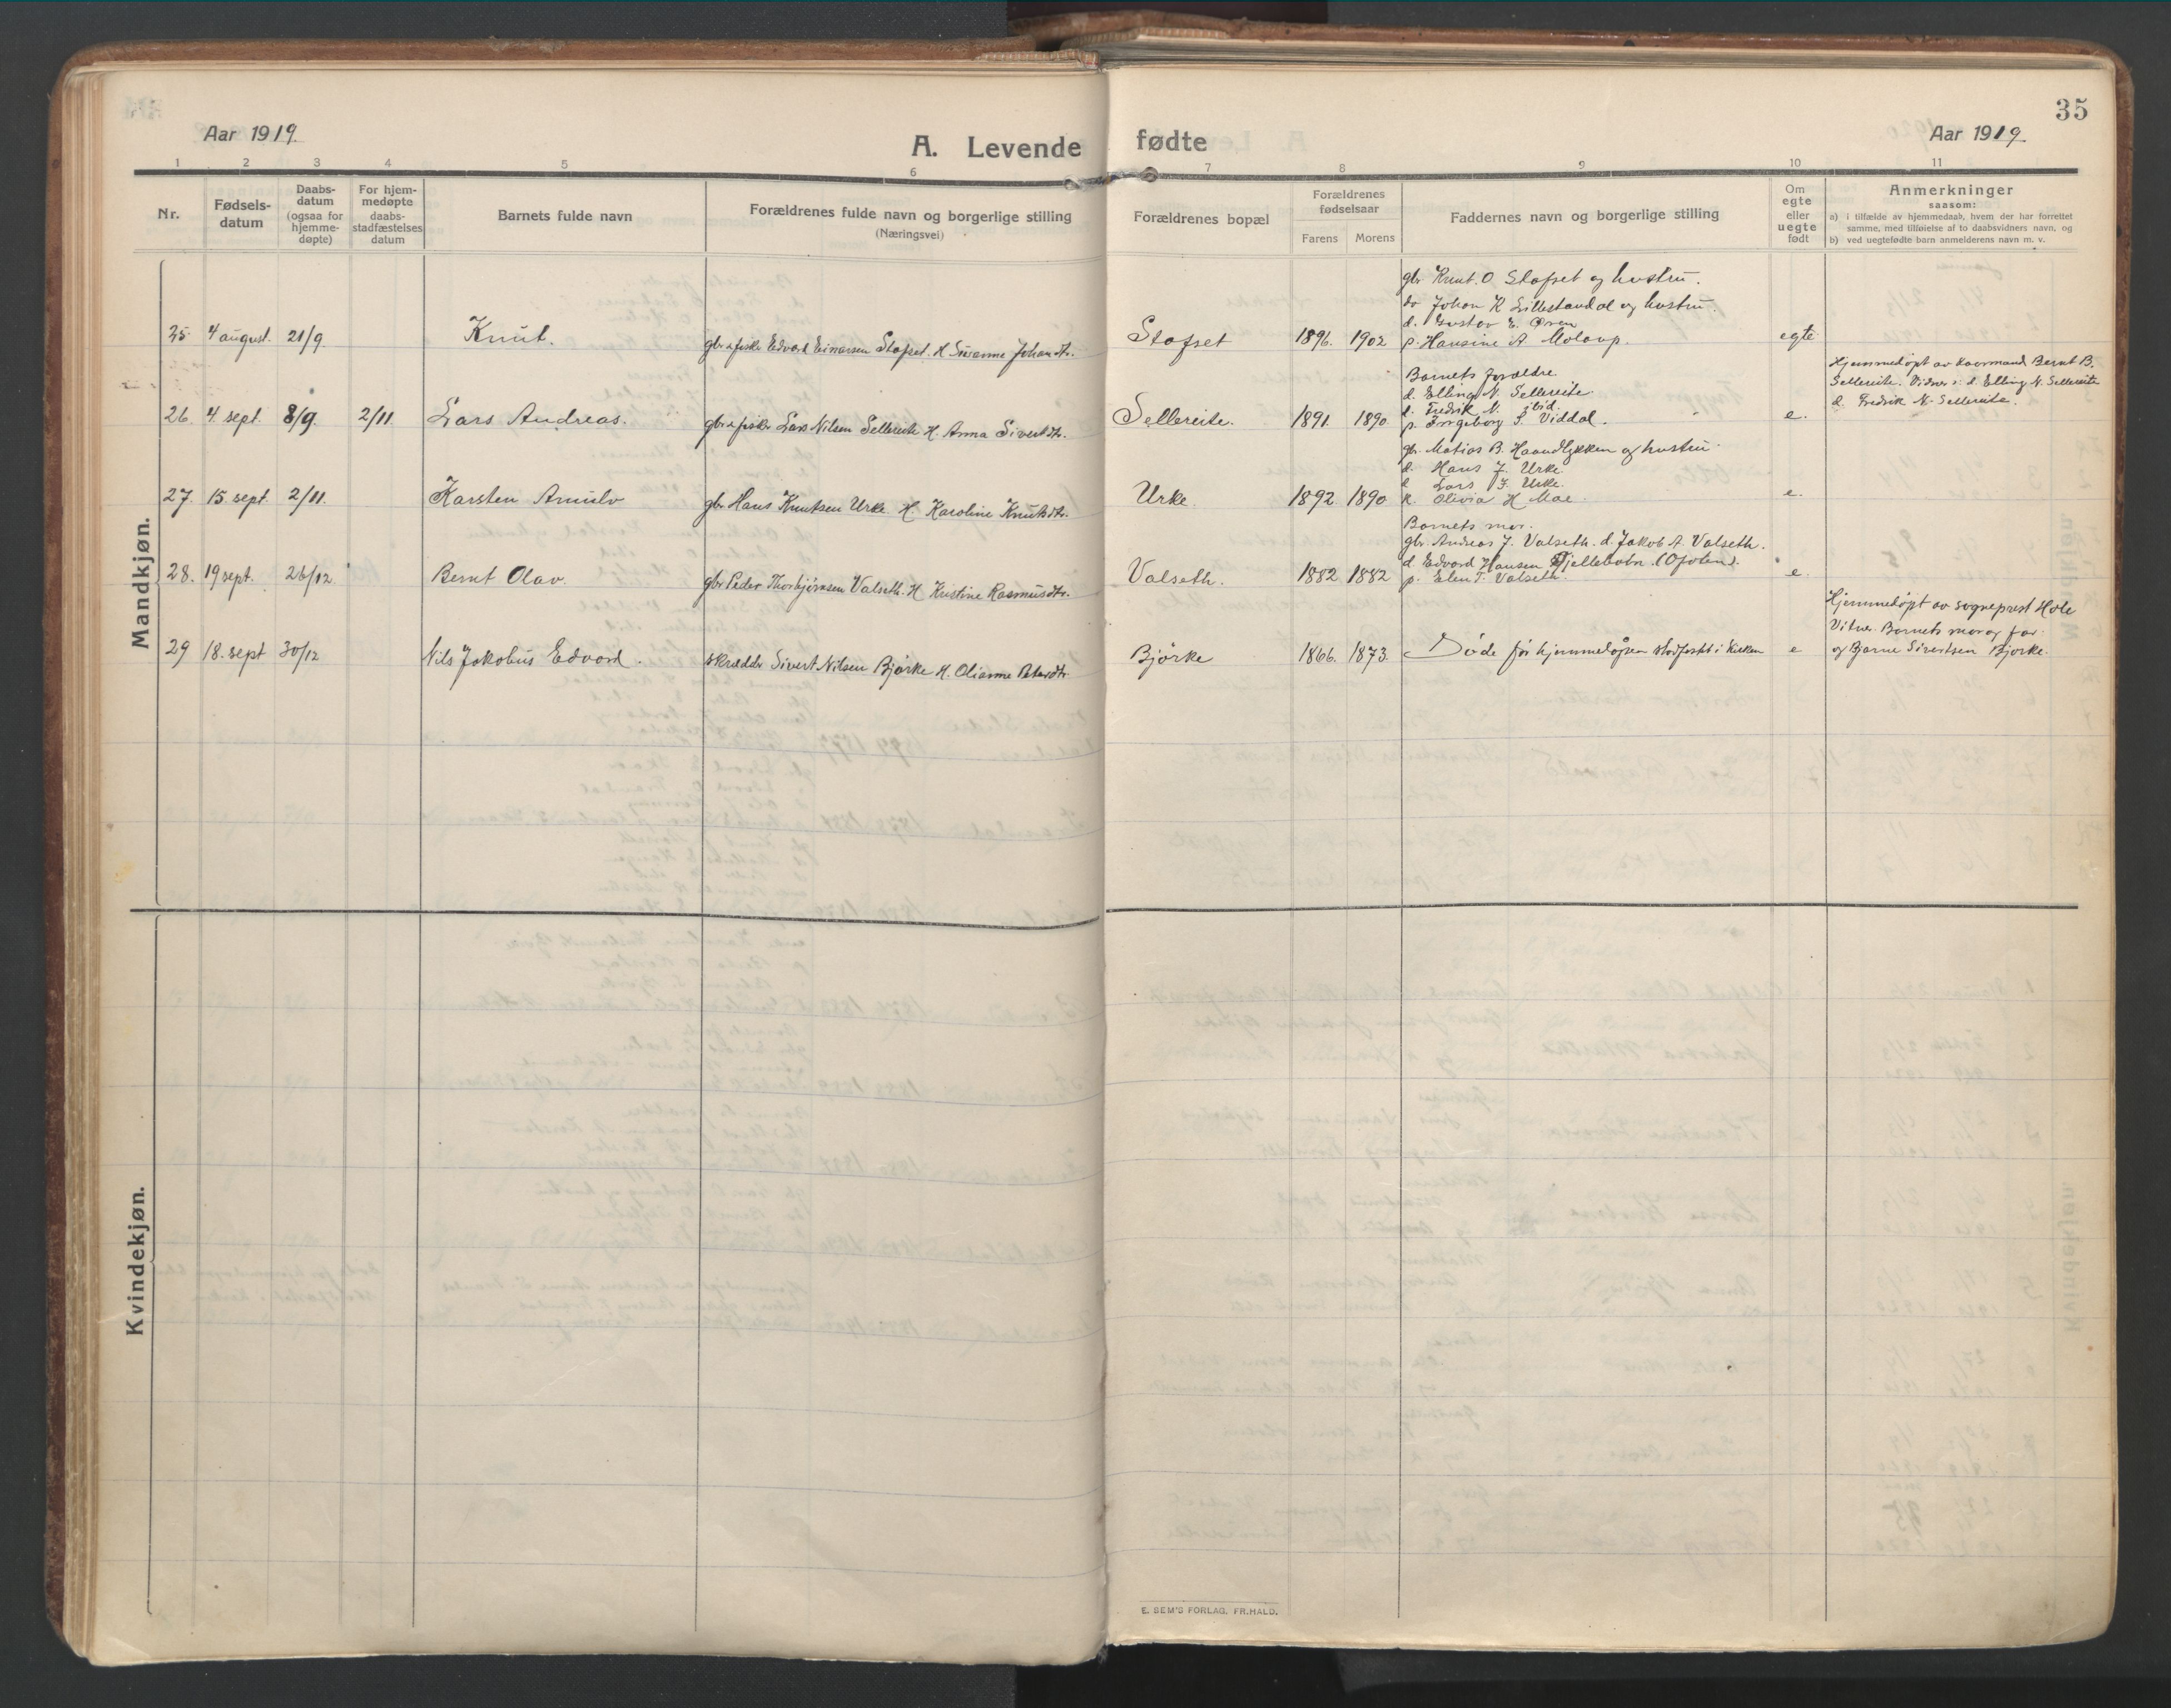 35
Aar 1919.
A. Levende fødte
Aar 1919
1 2 3 4 5 6 7 8 9 10 11
Nr.
Fødsels-
datum
Daabs-
datum
(ogsaa for
hjemme-
døpte)
For hjem-
medøpte
daabs-
stadfæstelses
datum
Barnets fulde navn
Forældrenes fulde navn og borgerlige stilling
(Næringsvei)
Forældrenes bopæl
Forældrenes
fødselsaar
Farens Morens
Faddernes navn og borgerlige stilling
Om
egte
eller
uegte
født
Anmerkninger
saasom:
a) i tilfælde av hjemmedaab, hvem der har forrettet
samme, med tilføielse af to daabsvidners navn, og
b) ved uegtefødte barn anmelderens navn m. v.
Mandkjøn.
gbr Knut. O Stafset og hustru.
do Johan K Lillestandal og hustru.
d. Gustav E.
25. 4 august. 21/9. Knut. gbr & fisker Edvard Einarsen Stafset. H Susanne Johansdtr. Stafset 1896. 1902 p. Hansine A Molaup. egte
Barnets forældre
d. Elling N. Sellereite
d. Fredrik N. ibid.
26. 4. sept. 8/9. 2/11. Lars Andreas. gbr & fisker Lars Nilsen Sellereite H. Anna Sivertdtr. Sellereite. 1891. 1890. p. Ingeborg S. Viddal. e.
Hjemmedøpt av kaarmand Bernt B.
Sellereite. Vidner: d. Elling N. Sellereite
d. Fredrik N. Sellereite.
gbr. Matias B. Haandlykken og hustru.
d. Hans J. Urke.
d Lars J. Urke.
27. 15 sept. 2/11. Karsten Arnulv gbr Hans Knutsen Urke H. Karoline Knutsdtr. Urke 1892. 1890 p. Olivia H Moe. e.
Barnets mor.
gbr. Andreas J. Valseth. d. Jakob A. Valseth.
d Edvard Hansen Fjellebotn. (Ofoten).
28. 19 sept. 26/12. Bernt Olav. gbr Peder Thorbjørnsen Valseth. H Kristine Rasmusdtr. Valseth. 1882 1882 p. Elen T. Valseth. e.
29 18. sept 30/12 Nils Jakobus Edvard. skrædder Sivert Nilsen Bjørke H. Olianne Petersdtr. Bjørke 1866. 1873. Døde før hjemmedåpen stadfestet i kirken e
Hjemmedøpt av sogneprest Hole
Vitner. Barnets mor og far
og Bjarne Sivertsen Bjørke.
Kvindekjøn.
E. SEM'S FORLAG, FR.HALD.